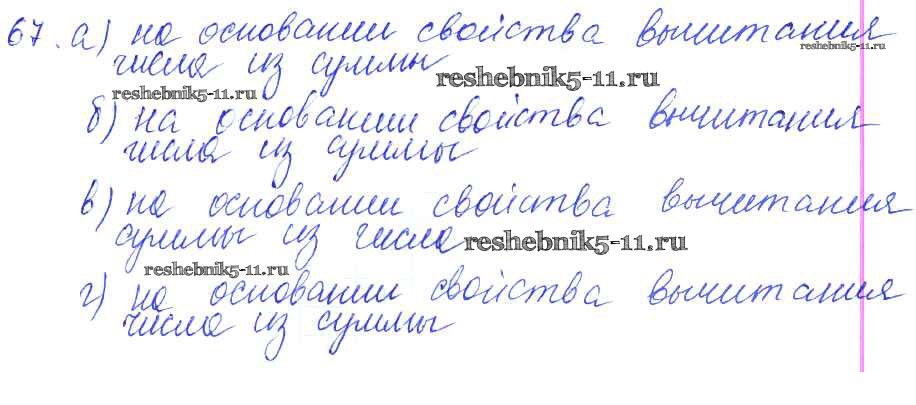 67. а) на основании свойства вычитания
reshebnik5-11.ru
числа из суммы reshebnik5-11.ru
reshebnik5-11.ru
б) на основании свойства вычитания
числа из суммы
в) на основании свойства вычитания
суммы из числа reshebnik5-11.ru
reshebnik5-11.ru
г) на основании свойства вычитания
числа из суммы